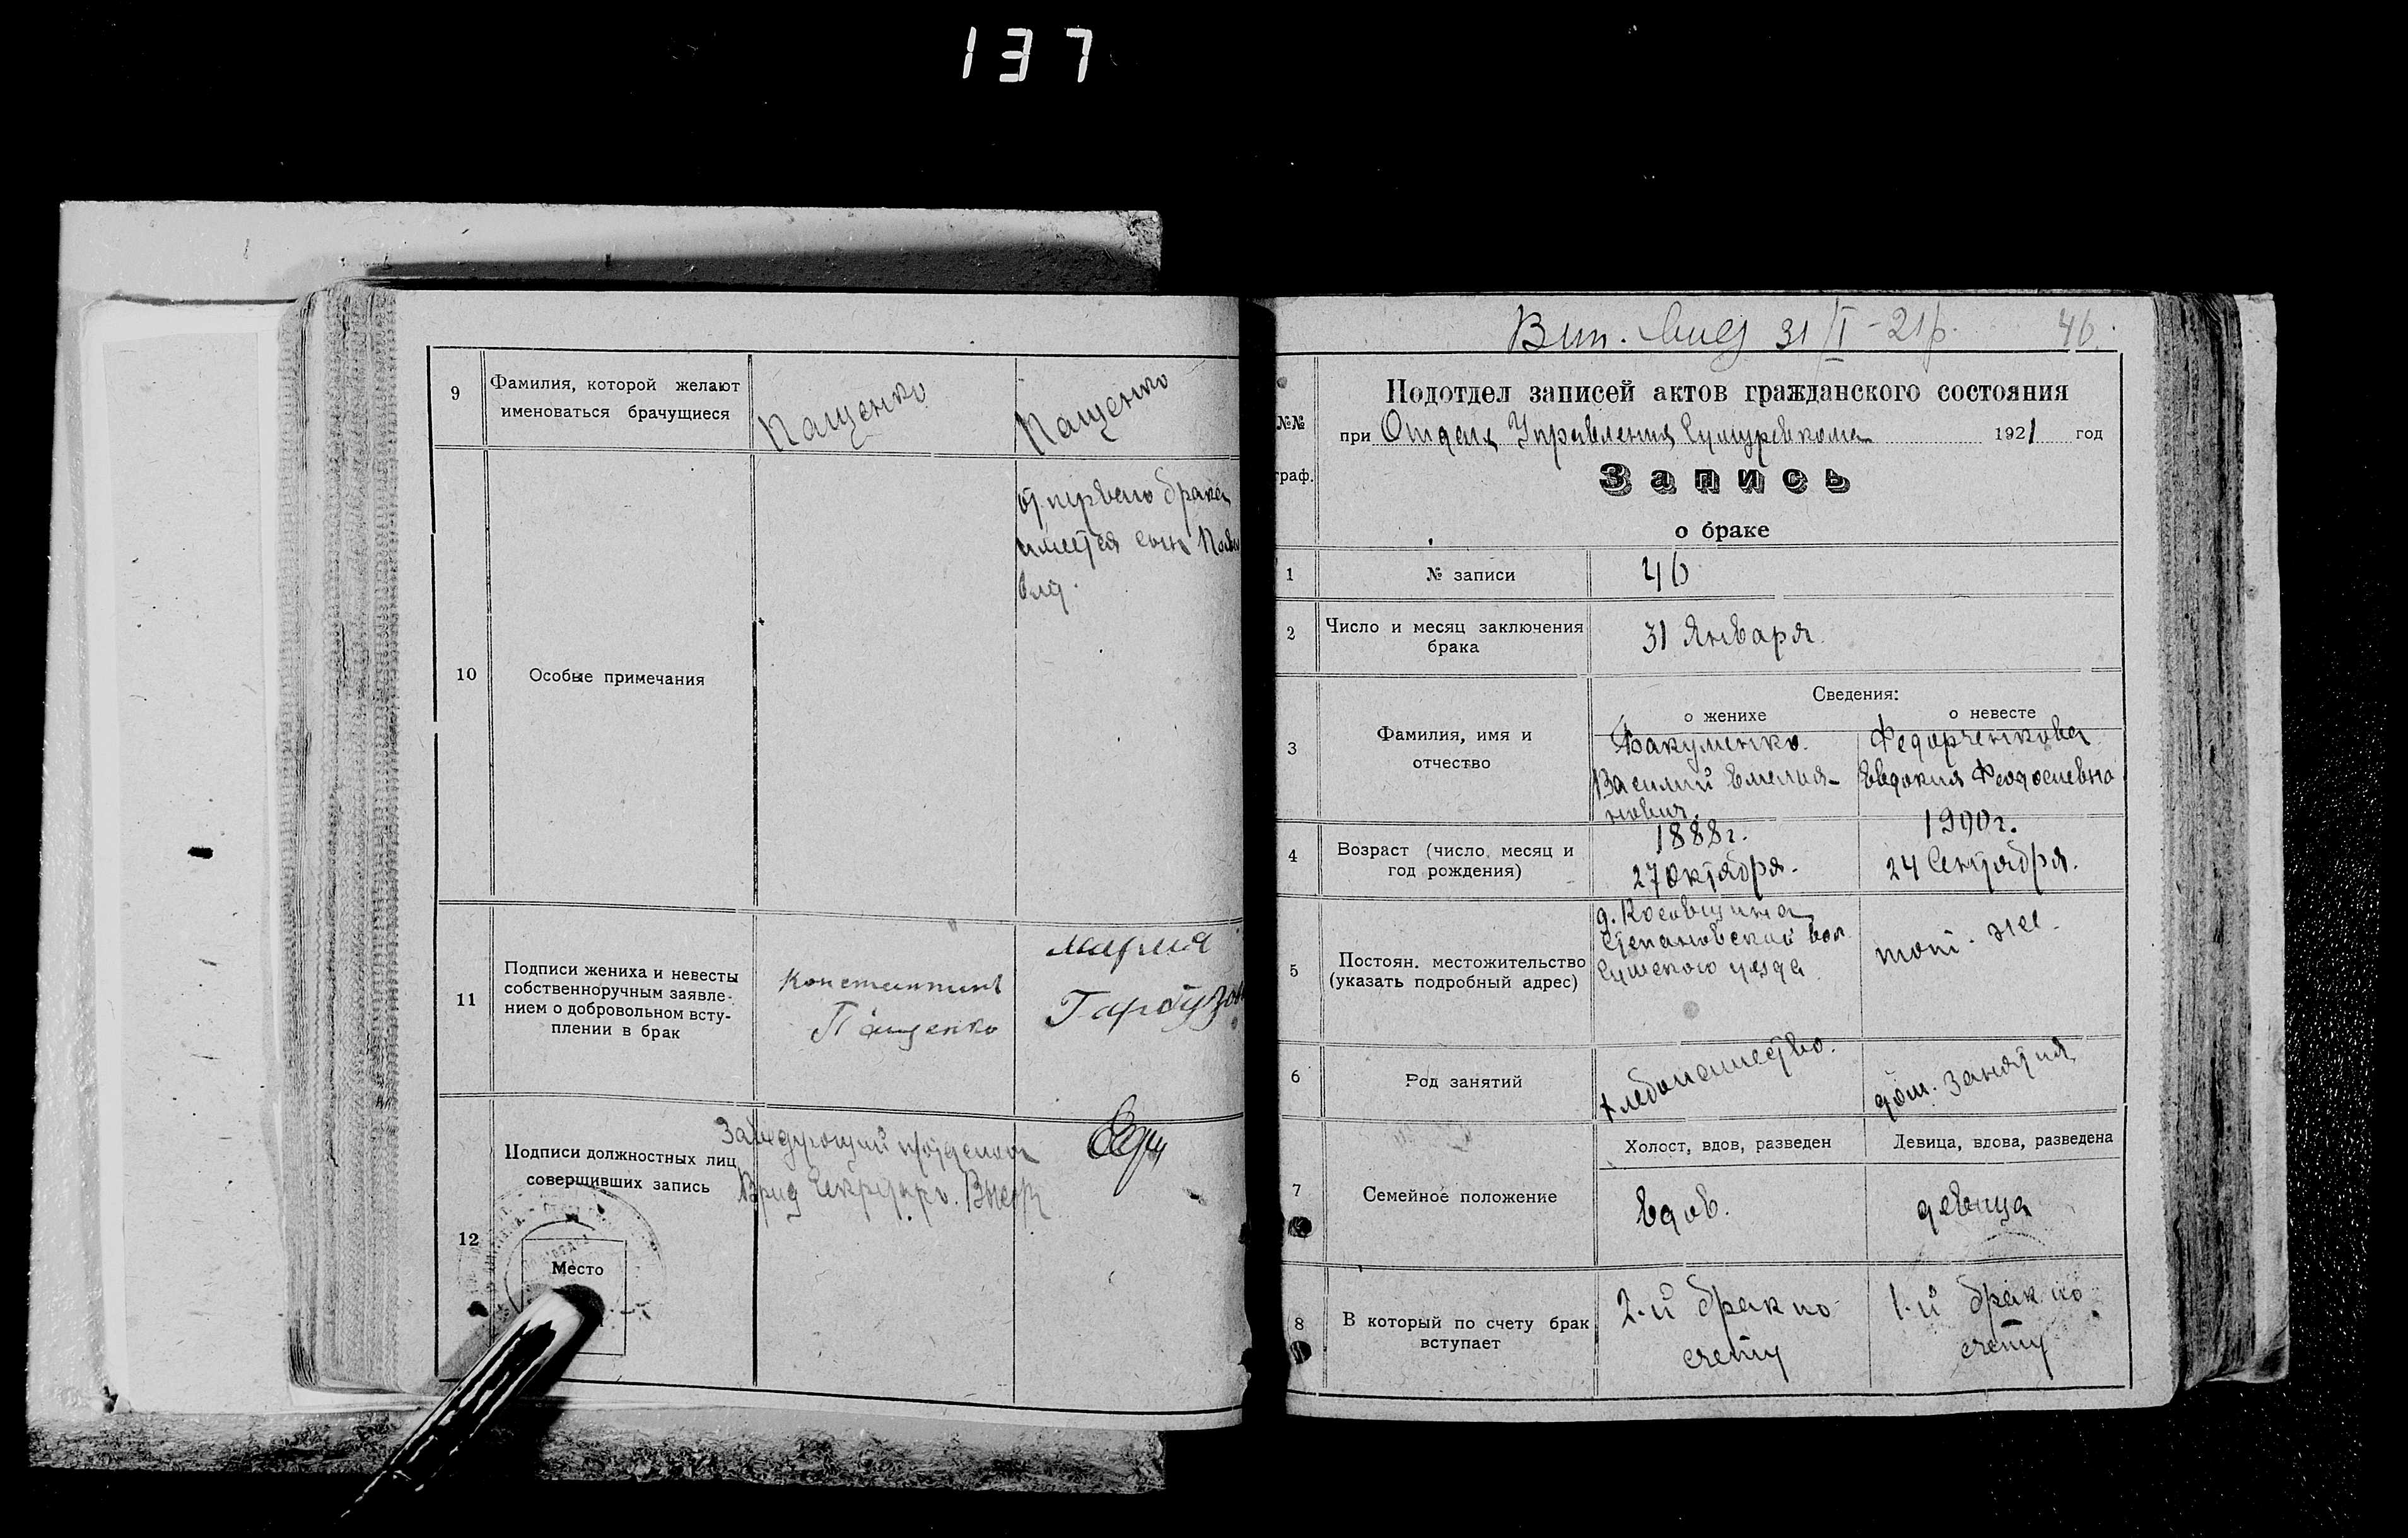 137
9
Фамилия, которой желают
именоваться брачущиеся
Пащенко
Пащенко
10
Особые примечания
от первого брака
имеется сын
11
Подписи жениха и невесты
собственноручным заявле-
нием о добровольном всту-
плении в брак
Константин
Пащенко
Мария
12
Подписи должностных лиц
совершивших запись
Заведующий
Врид
Место
31/I-21р.
46.
№№
граф.
Подотдел записей актов гражданского состояния
при Отделе Управления Сумуревкома 1921 год
Запись
о браке
1
№ записи
46
2
Число и месяц заключения
брака
31 Января.
3
Фамилия, имя и
отчество
Сведения:
о женихе
о невесте
Бакуменко.
Василий Емелья-
нович.
Федорченкова
Евдокия Феодосиевна
4
Возраст (число, месяц и
год рождения)
1888г.
27 Октября.
1900г.
24 Сентября.
5
Постоян. местожительство
(указать подробный адрес)
д. Косовщина
Степановской вол.
Сумского уезда
там же.
6
Род занятий
хлебопашество.
дом. занятия
7
Семейное положение
Холост, вдов, разведен
Девица, вдова, разведена
вдов.
девица
8
В который по счету брак
вступает
2-й брак по
счету
1-й брак по
счету